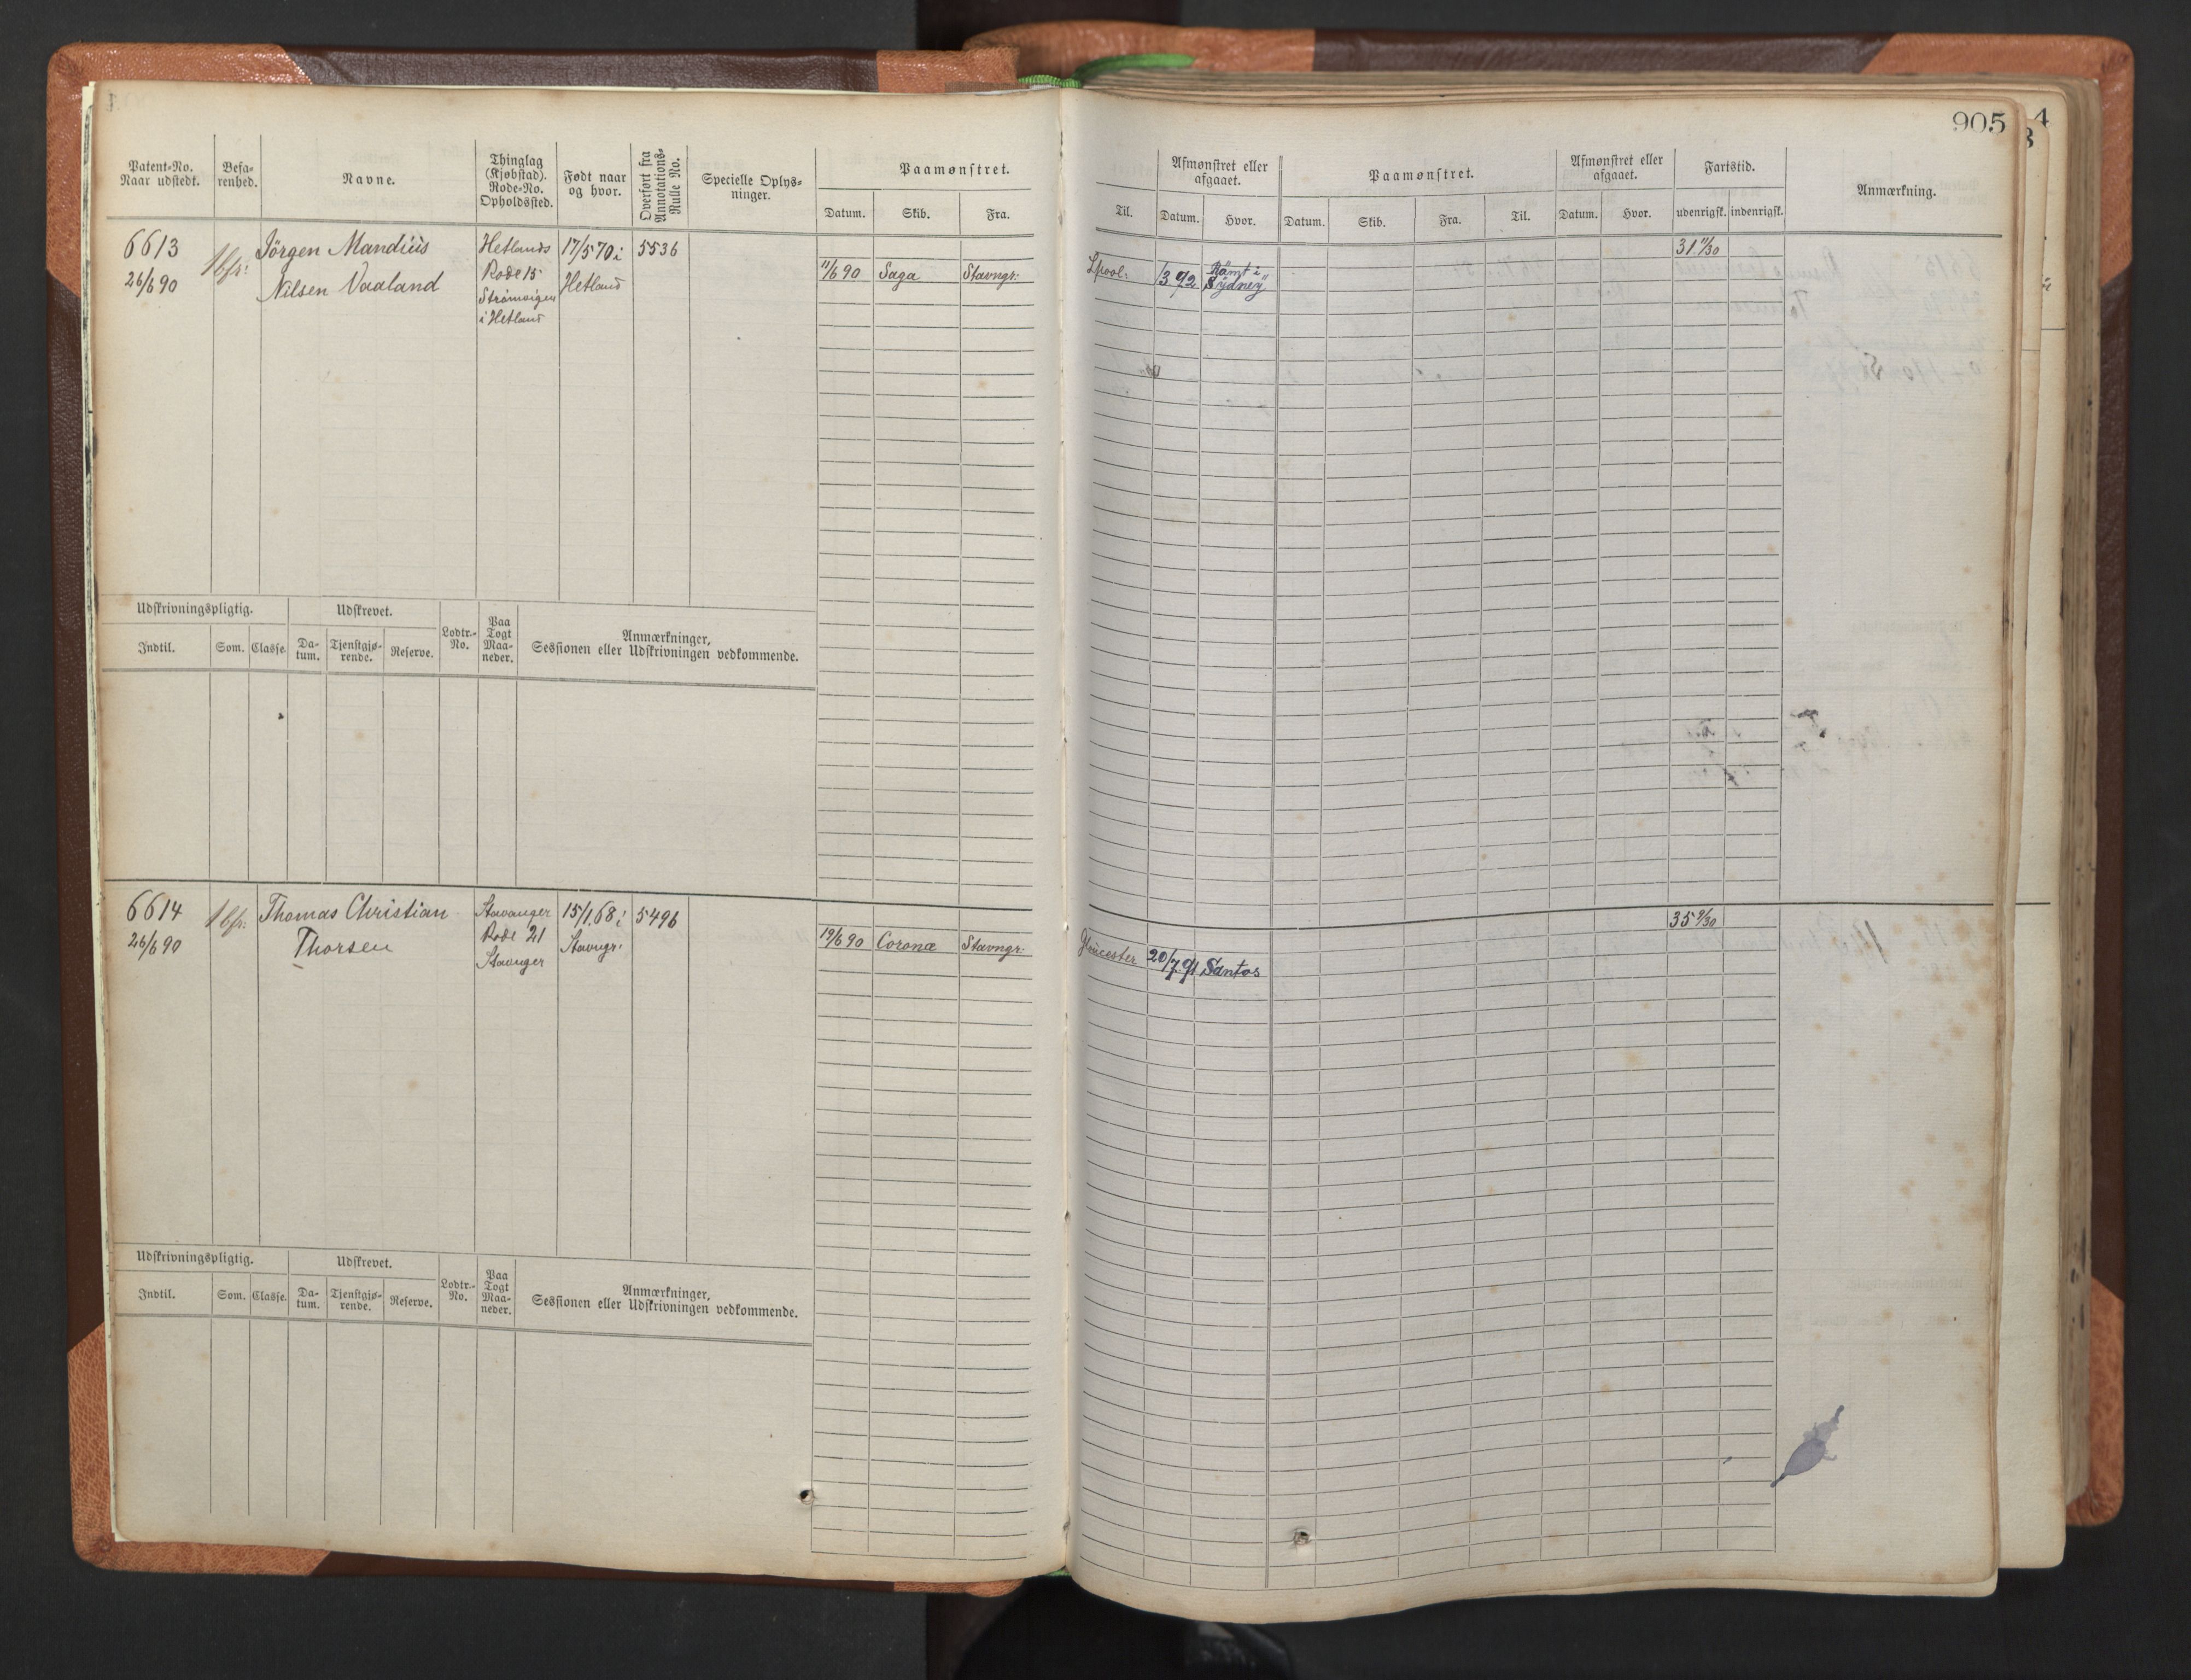 905
Patent-No. Naar udstedt.
Befarenhed.
Navne.
Thinglag (Kjøbstad). Rode-No. Opholdssted.
Født naar og hvor.
Overført fra Annotations-Rulle No.
Specielle Oplysninger.
Paamønstret.
Datum. Skib. Fra.
Til.
Afmønstret eller afgaaet.
Datum. Hvor.
Paamønstret.
Datum. Skib. Fra. Til.
Afmønstret eller afgaaet.
Datum. Hvor.
Fartstid.
udenrigsk. indenrigsk.
Anmærkning.
6613
26/6 90
Jörgen Mandius
Nilsen Vaaland
Hetlands
Rode 15
Strømvigen
i Hetland
17/5 70 i
Hetland
5536
11/6 90 Saga Stavngr:
Lpool: /3 92 Rømt i Sydney
31 11/30
Udskrivningspligtig.
Indtil. Som. Classe.
Udskrevet.
Datum. Tjenstgjørende. Reserve.
Lodtr.-No.
Paa Togt Maaneder.
Anmærkninger,
Sessionen eller Udskrivningen vedkommende.
6614
26/6 90
Thomas Christian
Thorsen
Stavanger
Rode 21
Stavanger
15/1 68 i
Stavngr:
5496
19/6 90 Coronæ Stavngr:
Gloucester 20/7 91 Santos
35 9/30
Udskrivningspligtig.
Indtil. Som. Classe.
Udskrevet.
Datum. Tjenstgjørende. Reserve.
Lodtr.-No.
Paa Togt Maaneder.
Anmærkninger,
Sessionen eller Udskrivningen vedkommende.